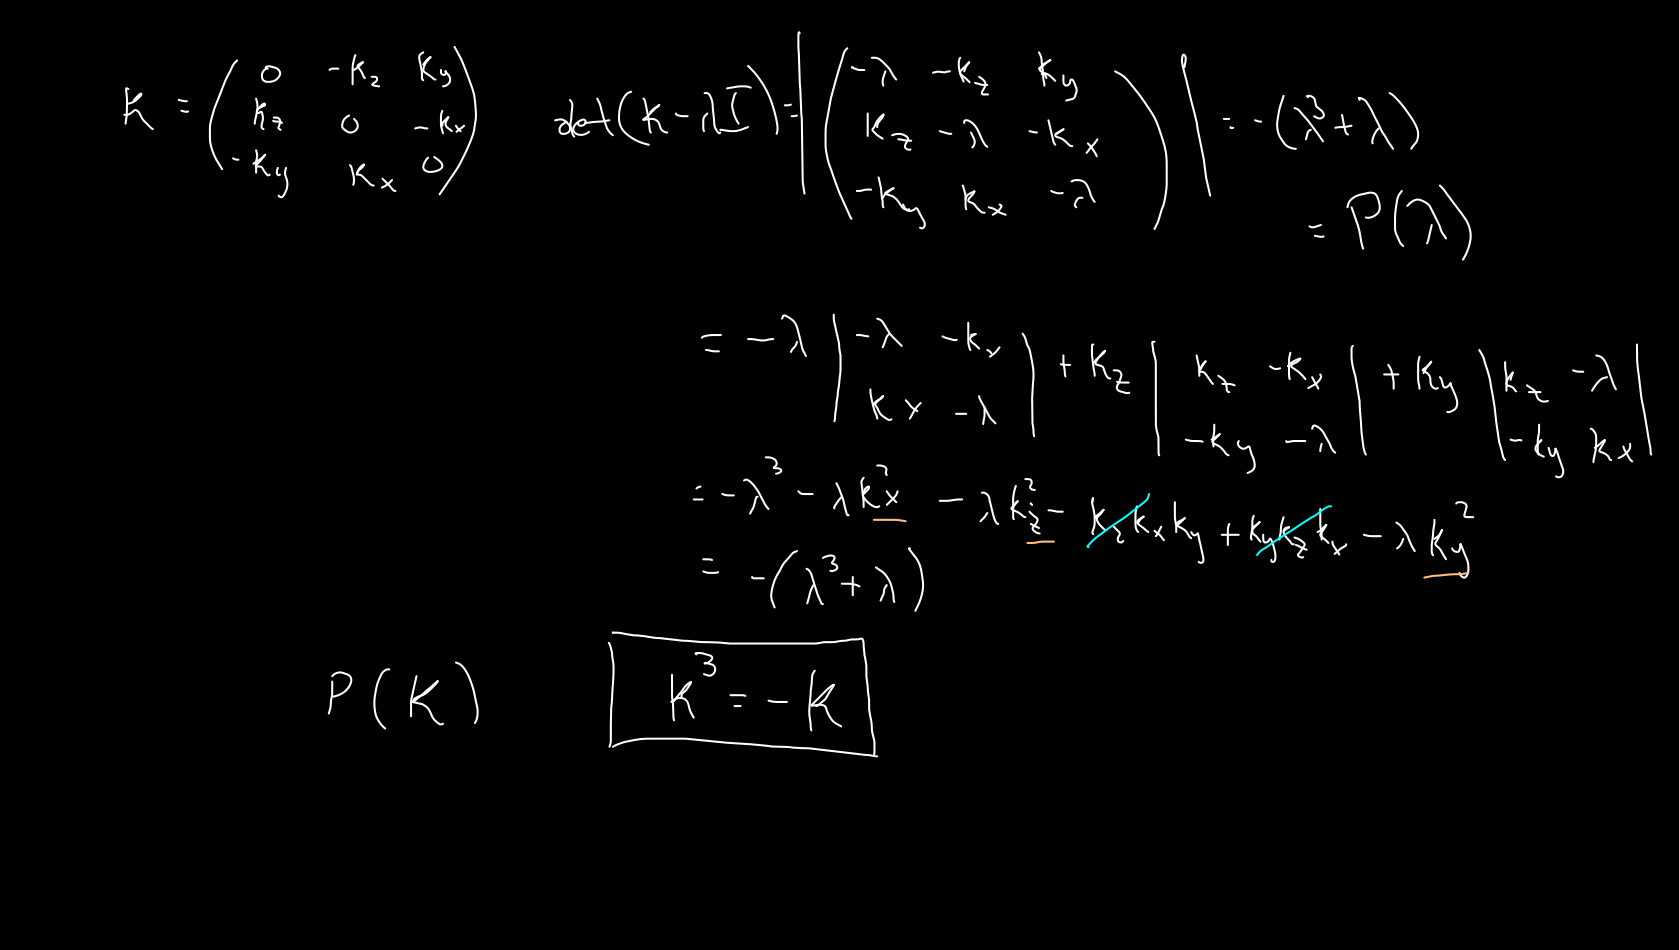 K = ( 0 -k_z k_y ; k_z 0 -k_x ; -k_y k_x 0 )
det(K - λI) = | ( -λ -k_z k_y ; k_z -λ -k_x ; -k_y k_x -λ ) | = -(λ^3 + λ)
= P(λ)
= -λ | -λ -k_x ; k_x -λ | + k_z | k_z -k_x ; -k_y -λ | + k_y | k_z -λ ; -k_y k_x |
= -λ^3 - λk_x^2 - λk_z^2 - k_z k_x k_y + k_y k_z k_x - λk_y^2
= -(λ^3 + λ)
P(K)
K^3 = -K